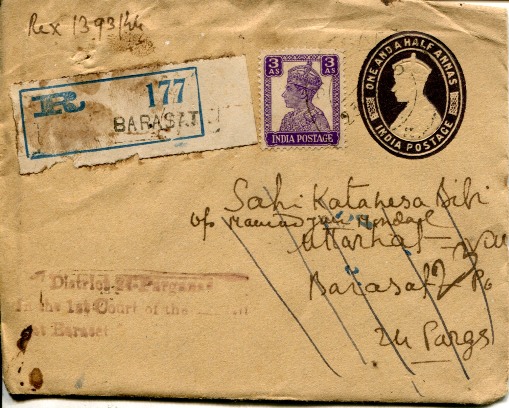 Rex 1393/44
R 177
BARASAT
3 AS 3 AS
INDIA POSTAGE
ONE AND A HALF ANNAS
INDIA POSTAGE
Sahi Katanesa Bibi
Mondal
Uttarhat
Barasat Po
24 Pargs
District-24-Parganas
in the 1st Court of the
at Barasat